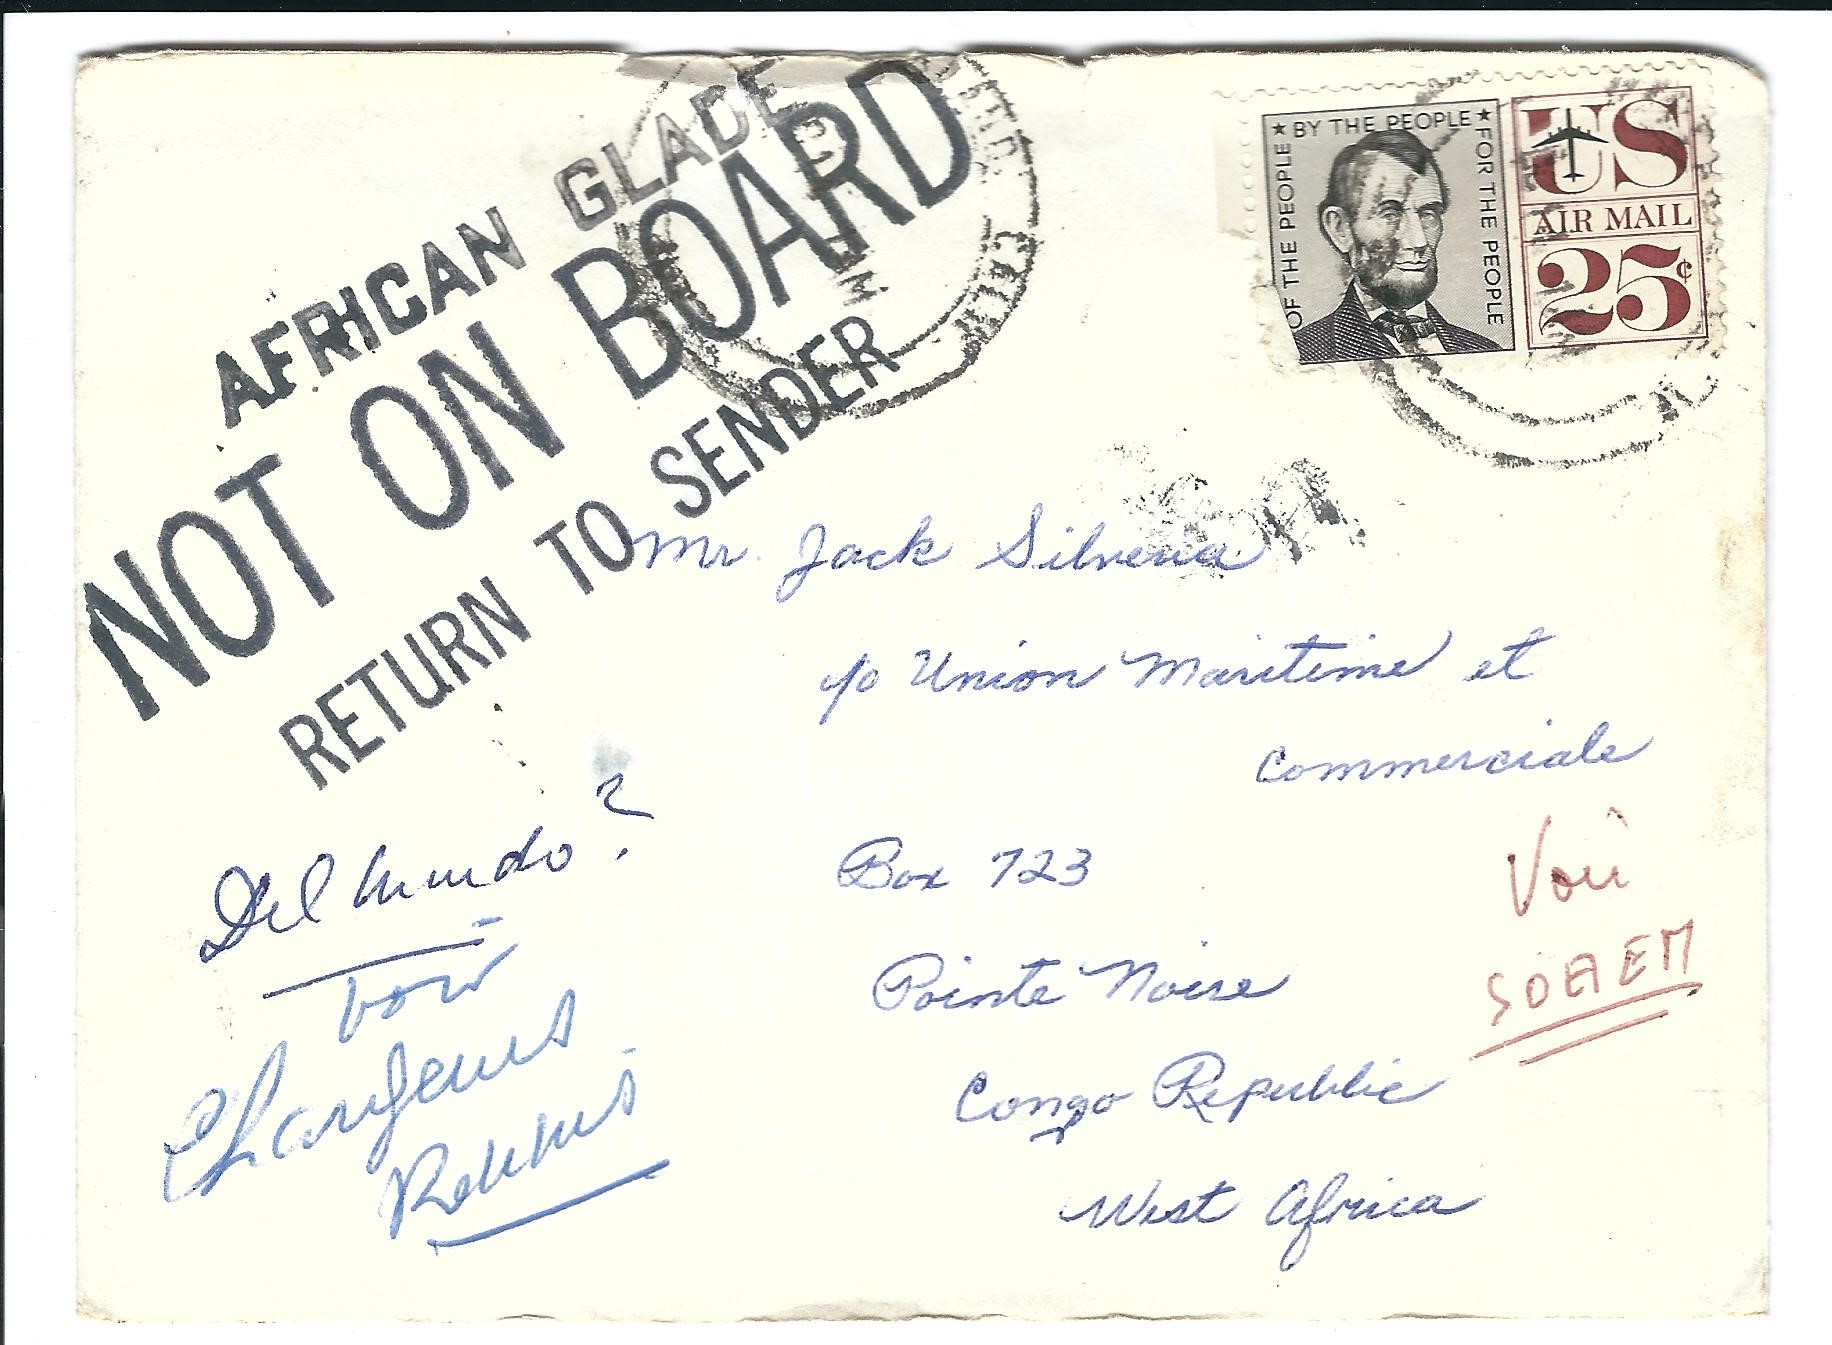 AFRICAN GLADE
NOT ON BOARD
RETURN TO SENDER
OF THE PEOPLE ★ BY THE PEOPLE ★ FOR THE PEOPLE
US
AIR MAIL
25¢
Mr. Jack Silveria
c/o Union Maritime et
Commerciale
Box 723
Pointe Noire
Congo Republic
West Africa
Del Mundo?
voir
Chargeurs
Réunis
Voir